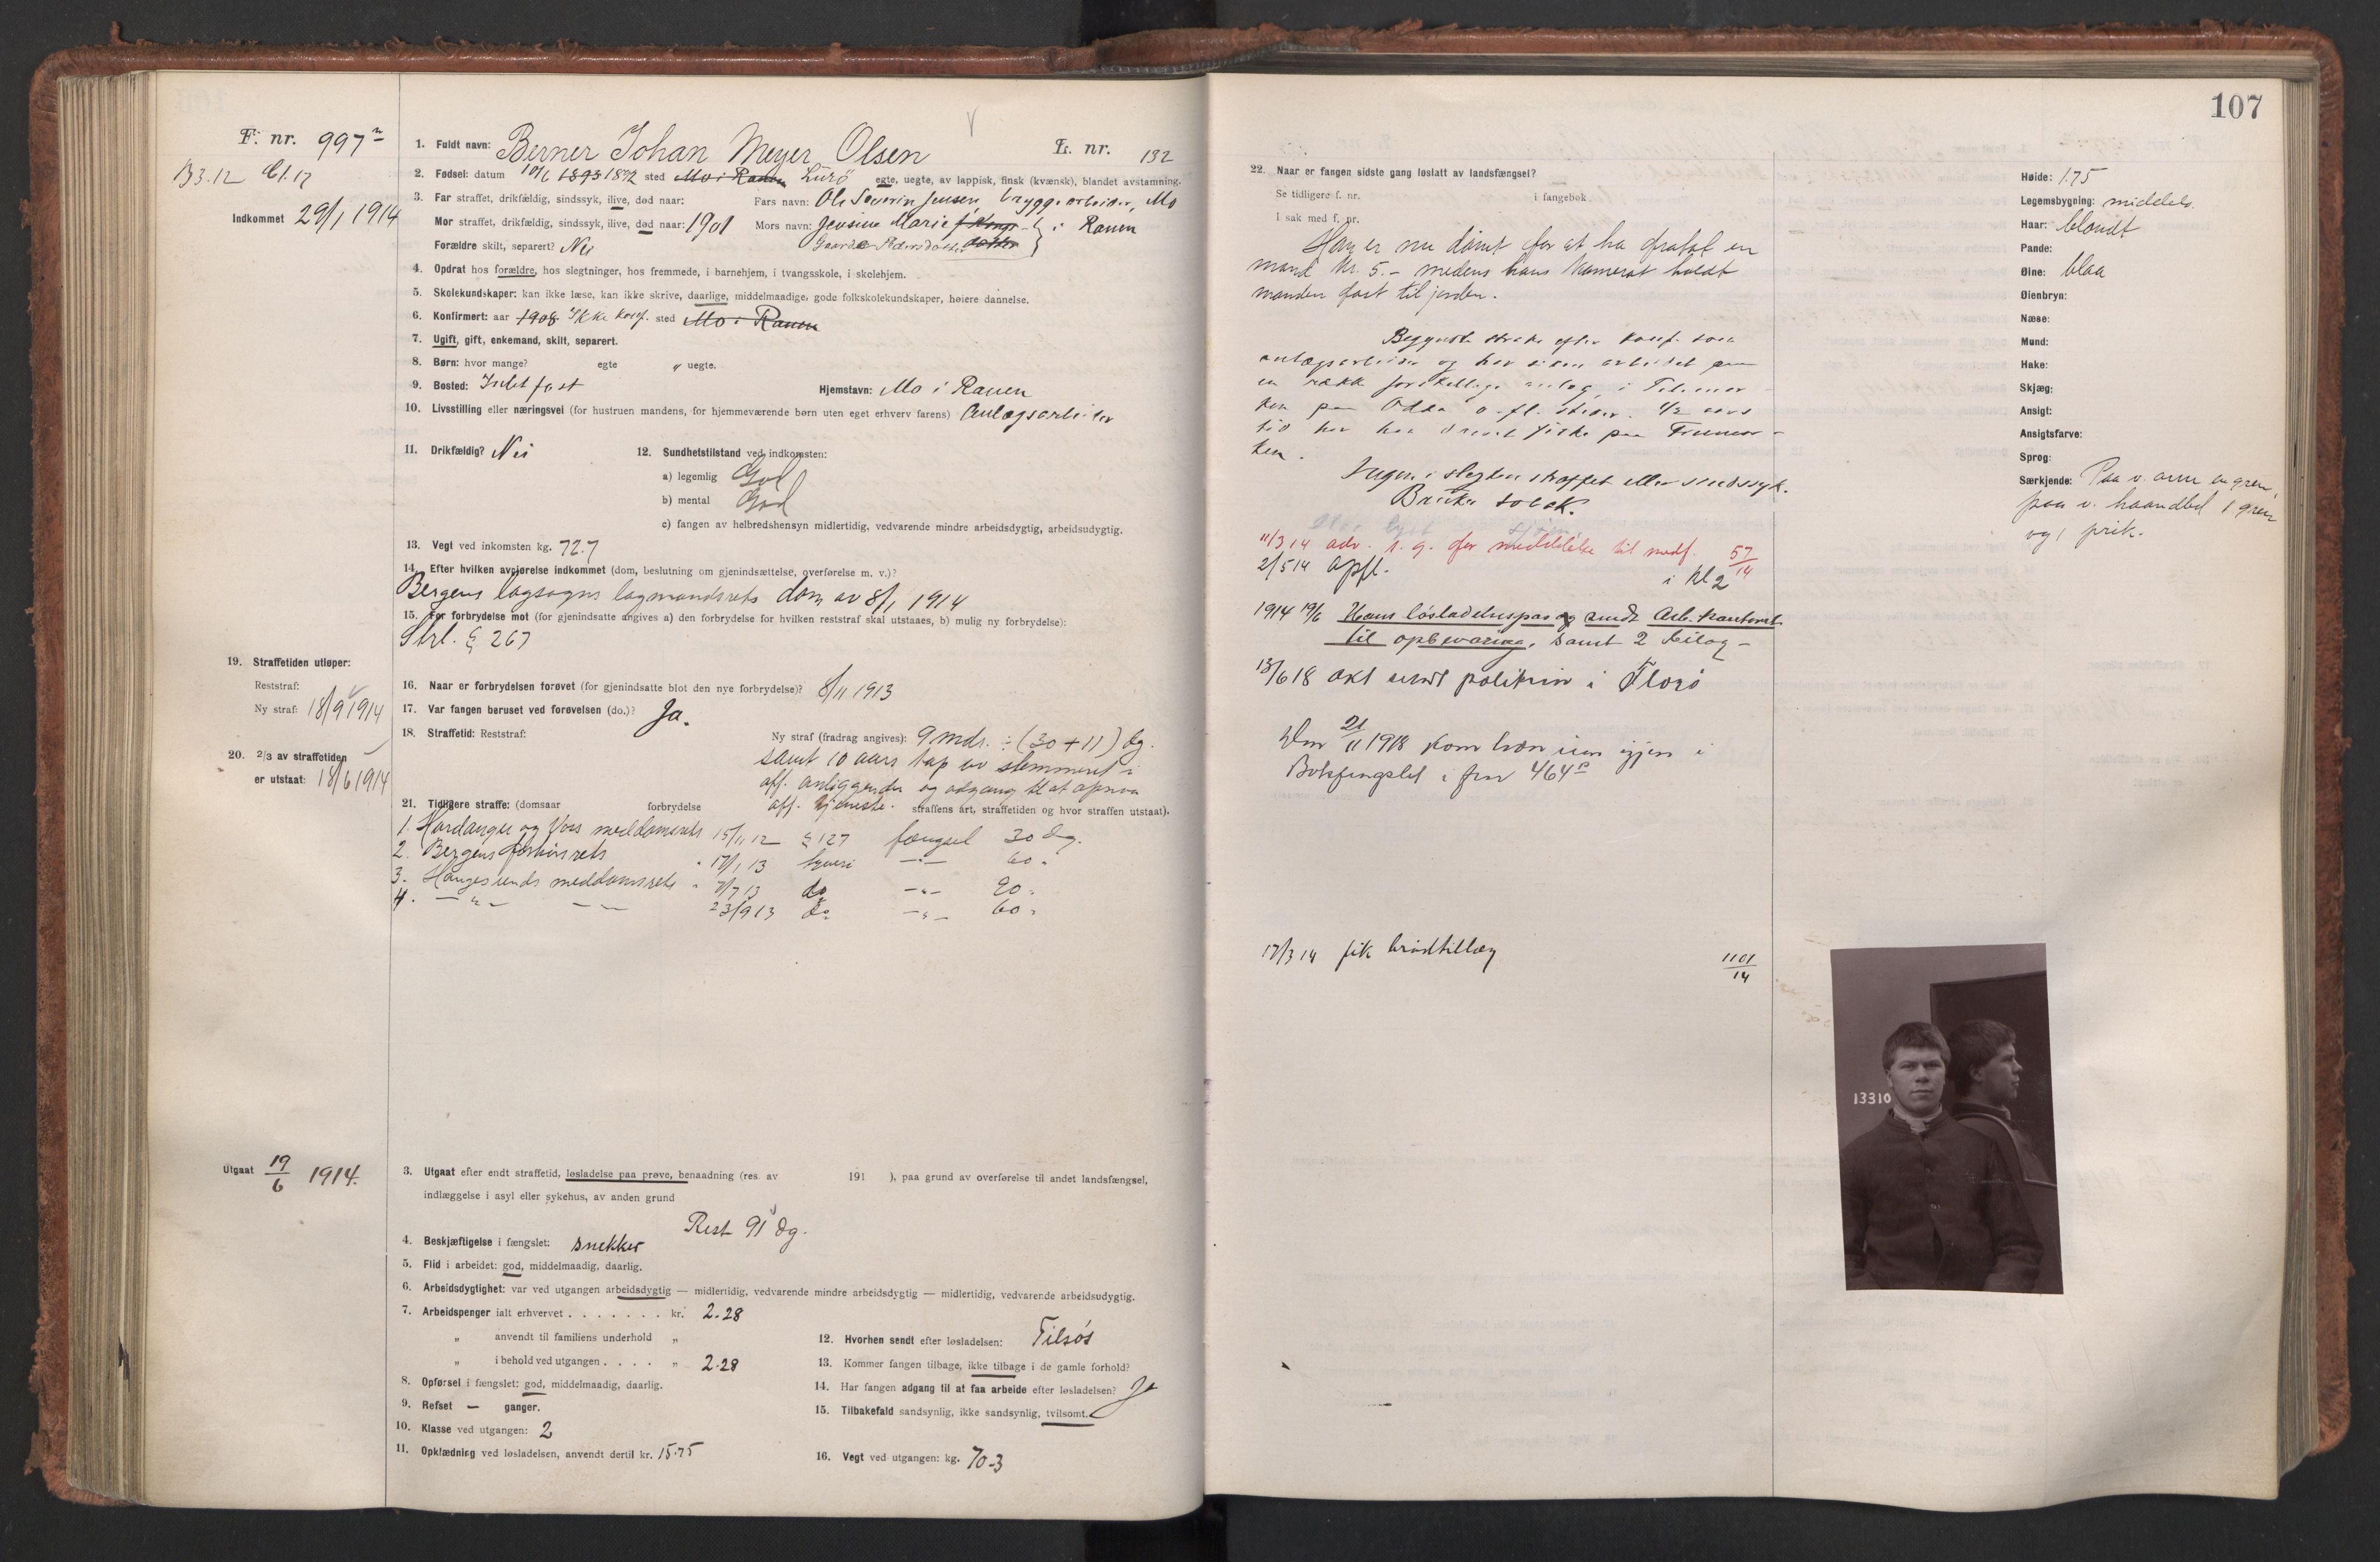 F. nr. 997
B3.12 Cl.17
Indkommet 29/1 1914
1. Fuldt navn: Berner Johan Meyer Olsen L. nr. 132
2. Fødsel: datum 10/6 1893 1892 sted Mo i Ranen Lurö egte, uegte, av lappisk, finsk (kvænsk), blandet avstamning.
3. Far straffet, drikfældig, sindssyk, ilive, død naar: Fars navn: Ole Severin Jensen, bryggearbeider, Mo
Mor straffet, drikfældig, sindssyk, ilive, død naar: 1901 Mors navn: Jensine Marie f. i Ranen
Forældre skilt, separert? Nei Pedersdatter
4. Opdrat hos forældre, hos slegtninger, hos fremmede, i barnehjem, i tvangsskole, i skolehjem.
5. Skolekundskaper: kan ikke læse, kan ikke skrive, daarlige, middelmaadige, gode folkskolekundskaper, høiere dannelse.
6. Konfirmert: aar 1908 Ikke konf. sted Mo i Ranen
7. Ugift, gift, enkemand, skilt, separert.
8. Børn: hvor mange? egte " uegte.
9. Bosted: Intet fast Hjemstavn: Mo i Ranen
10. Livsstilling eller næringsvei (for hustruen mandens, for hjemmeværende børn uten eget erhverv farens) Anlægsarbeider
11. Drikfældig? Nei 12. Sundhetstilstand ved indkomsten:
a) legemlig God
b) mental God
c) fangen av helbredshensyn midlertidig, vedvarende mindre arbeidsdygtig, arbeidsudygtig.
13. Vegt ved inkomsten kg. 72.7
14. Efter hvilken avgjørelse indkommet (dom, beslutning om gjenindsættelse, overførelse m. v.)?
Bergens lagsogns lagmandsrets dom av 8/1 1914
15. For forbrydelse mot (for gjenindsatte angives a) den forbrydelse for hvilken reststraf skal utstaaes, b) mulig ny forbrydelse):
Strl. § 267
19. Straffetiden utløper:
Reststraf:
Ny straf: 18/9 1914
16. Naar er forbrydelsen forøvet (for gjenindsatte blot den nye forbrydelse)? 8/11 1913
17. Var fangen beruset ved forøvelsen (do.)? Ja.
18. Straffetid: Reststraf: Ny straf (fradrag angives): 9 mdr. ÷ (30 + 11) dg.
samt 10 aars tap av stemmeret i
off. anliggender og adgang til at opnaa
off. tjeneste.
20. 2/3 av straffetiden
er utstaat: 18/6 1914
21. Tidligere straffe: (domsaar forbrydelse straffens art, straffetiden og hvor straffen utstaat).
1. Hardanger og Voss meddomsrets 15/11 12 § 127 fængsel 30 dg.
2. Bergens forhörsrets " 17/1 13 tyveri — " — 60 "
3. Haugesunds meddomsrets " 7/7 13 do — " — 90 "
4. — " — — — 23/9 13 do — " — 60 "
Utgaat 19/6 1914.
3. Utgaat efter endt straffetid, løsladelse paa prøve, benaadning (res. av 191 ), paa grund av overførelse til andet landsfængsel,
indlæggelse i asyl eller sykehus, av anden grund
Rest 91 dg.
4. Beskjæftigelse i fængslet: snekker
5. Flid i arbeidet: god, middelmaadig, daarlig.
6. Arbeidsdygtighet: var ved utgangen arbeidsdygtig — midlertidig, vedvarende mindre arbeidsdygtig — midlertidig, vedvarende arbeidsudygtig.
7. Arbeidspenger ialt erhvervet . . . . . . . kr. 2.28
" anvendt til familiens underhold "
" i behold ved utgangen . . . . " 2.28
8. Opførsel i fængslet: god, middelmaadig, daarlig.
9. Refset — ganger.
10. Klasse ved utgangen: 2
11. Opklædning ved løsladelsen, anvendt dertil kr. 15.75
12. Hvorhen sendt efter løsladelsen: Tilsös
13. Kommer fangen tilbage, ikke tilbage i de gamle forhold?
14. Har fangen adgang til at faa arbeide efter løsladelsen? Ja
15. Tilbakefald sandsynlig, ikke sandsynlig, tvilsomt.
16. Vegt ved utgangen: kg. 70.3
107
22. Naar er fangen sidste gang løslatt av landsfængsel?
Se tidligere f. nr. i fangebok
I sak med f. nr.
Han er nu dömt for at ha frataf en
mand Kr. 5.- medens hans kamerat holdt
manden fast til jorden.
Begyndte straks efter konf. som
anlægsarbeider og har siden arbeidet paa
en række forskellige anlæg i Telemar
ken paa Odda o. fl. steder. 1/2 aars
tid har han drevet fiske paa
Ingen i slegten straffet eller sindssyk.
Bruker tobak.
11/3 14 adv. 1. g. for meddelelse til medf. 57/14
2/5 14 opfl. i kl 2
1914 19/6 Hans løsladelsespas og sendt Arb. kontoret
til opbevaring, samt 2 bilag -
13/6 18 akt sendt politiet i Florö
Den 21/11 1918 kom han inn igjen i
Botsfængslet i fnr 464
17/3 14 fik brödtillæg 1101/14
Høide: 1.75
Legemsbygning: middels.
Haar: blondt
Pande:
Øine: blaa
Øienbryn:
Næse:
Mund:
Hake:
Skjæg:
Ansigt:
Ansigtsfarve:
Sprog:
Særkjende: Paa v. arm en gren,
paa v. haandled 1 gren
og 1 prik.
13310